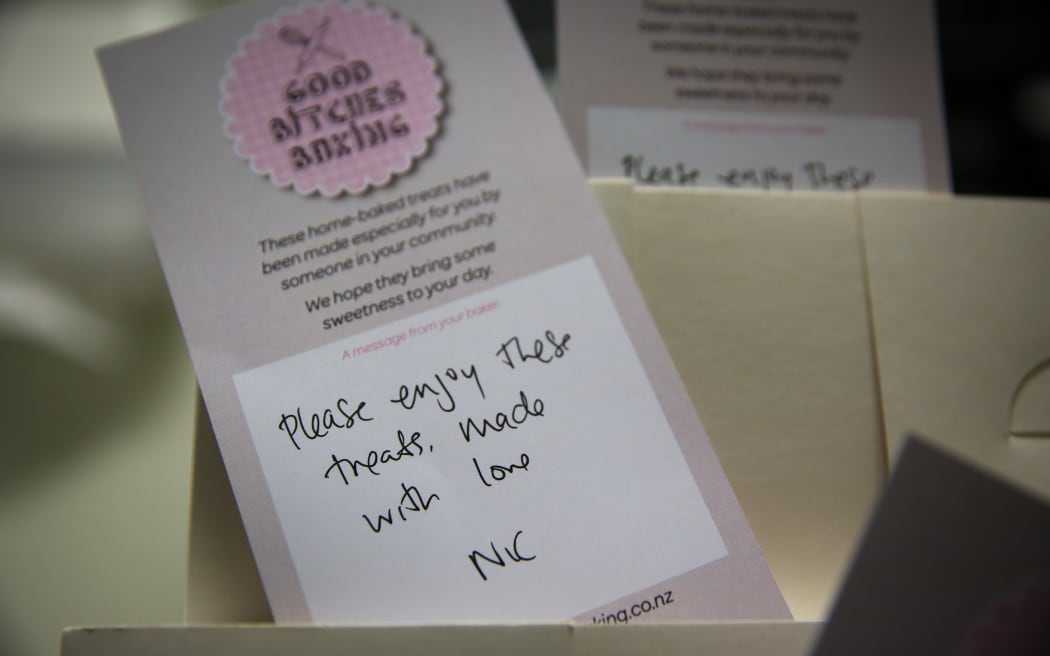 GOOD
BITCHES
BAKING
These home-baked treats have
been made especially for you by
someone in your community.
We hope they bring some
sweetness to your day.
A message from your baker:
Please enjoy these
treats, made
with love
NIC
king.co.nz
These home-baked treats have
been made especially for you by
someone in your community.
We hope they bring some
sweetness to your day.
A message from your baker:
Please enjoy these